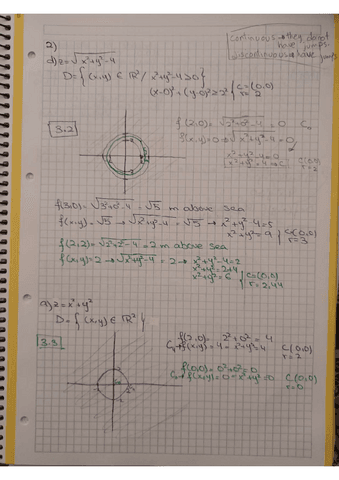 2)
continuous → they do not
have jumps.
discontinuous → have jumps
d) z = √x²+y²-4
D = { (x,y) ∈ ℝ² / x²+y²-4≥0 }
(x-0)²+(y-0)²≥2² { C=(0,0)
r=2
3.2
f(2,0) = √2²+0²-4 = 0
f(x,y)=0 → √x²+y²-4=0
x²+y²-4=0
x²+y²=4 C(0,0)
r=2
f(3,0) = √3²+0²-4 = √5 m above sea
f(x,y)=√5 → √x²+y²-4 = √5 → x²+y²-4=5
x²+y²=9 { C=(0,0)
r=3
f(2,2) = √2²+2²-4 = 2 m above sea
f(x,y)=2 → √x²+y²-4 = 2 → x²+y²-4=2
x²+y²=2+4
x²+y²=6 { C=(0,0)
r=2,44
a) z=x²+y²
D = { (x,y) ∈ ℝ² }
3.3
f(2,0) = 2²+0² = 4
f(x,y)=4 → x²+y²=4 C(0,0)
r=2
f(0,0) = 0²+0²=0
f(x,y)=0 → x²+y²=0 C(0,0)
r=0